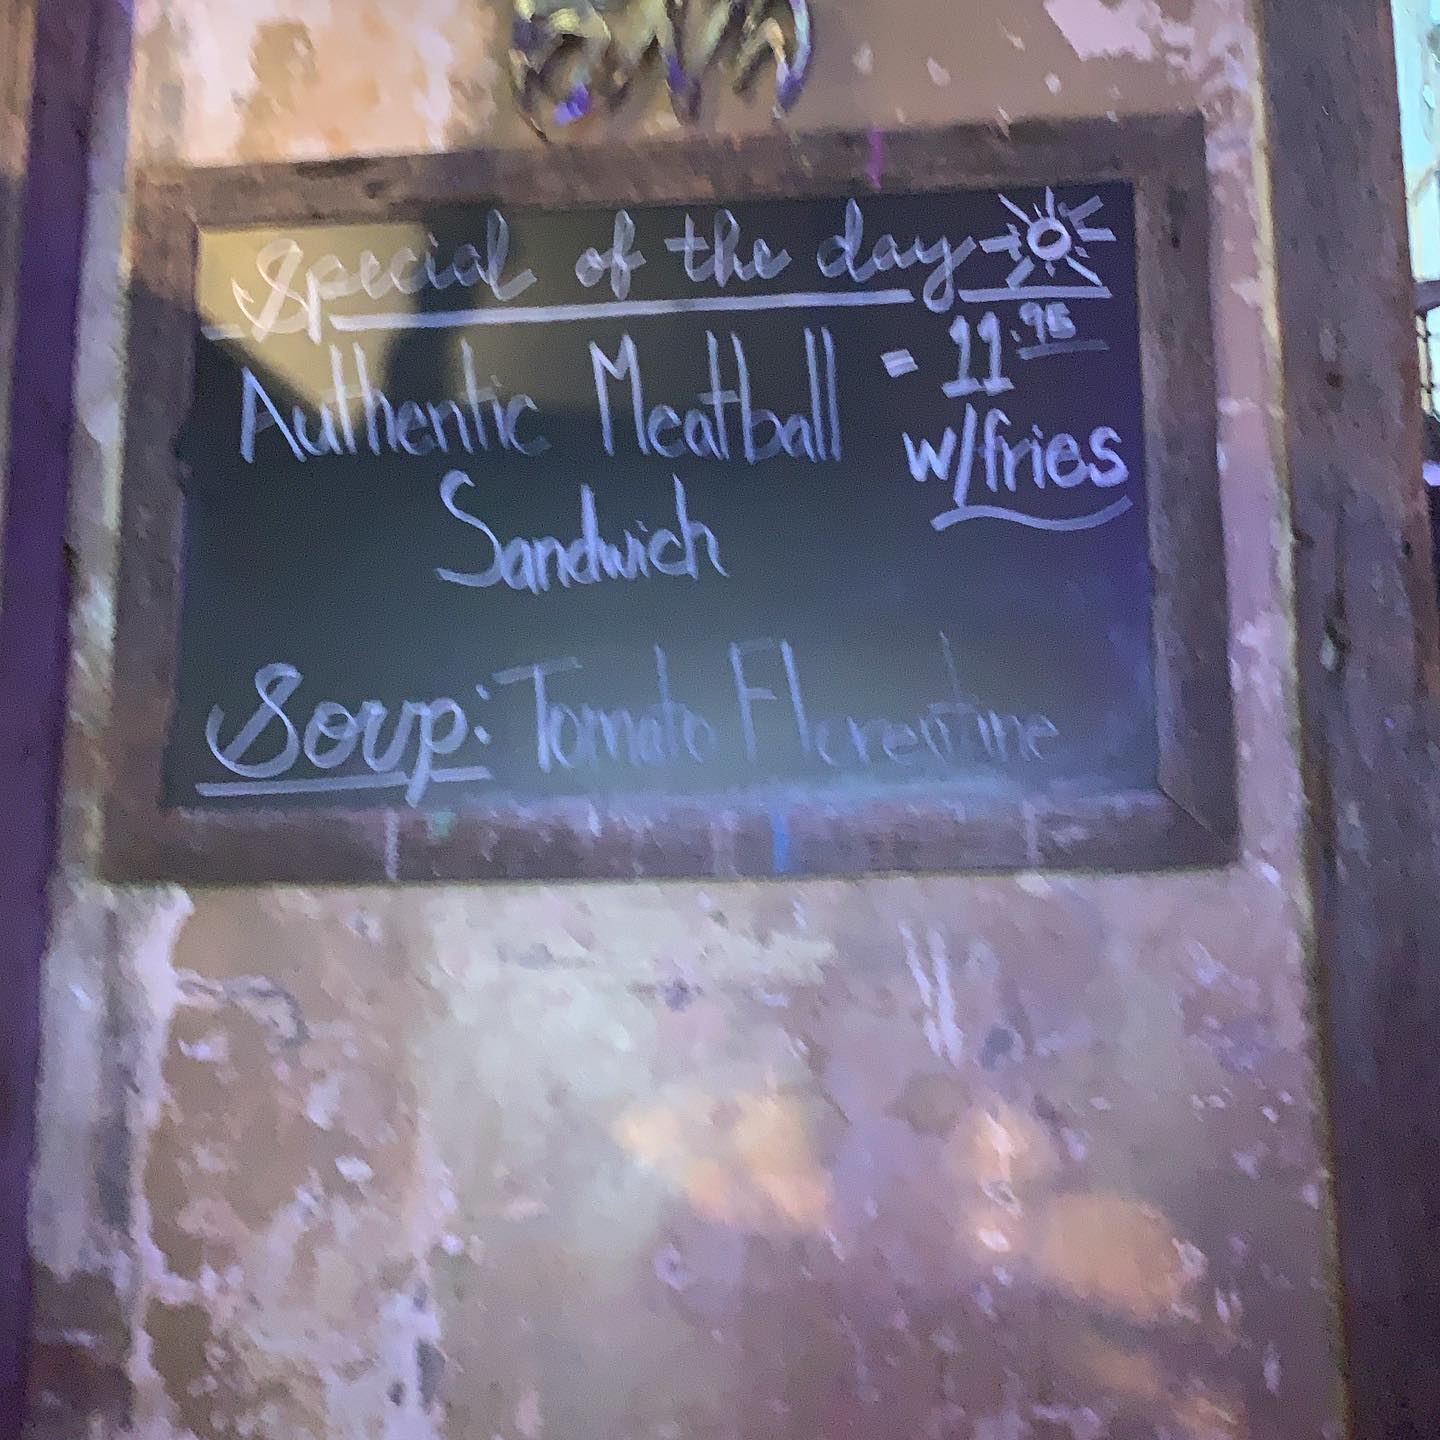 Special of the day
Authentic Meatball = 11.95
w/fries
Sandwich
Soup: Tomato Florentine